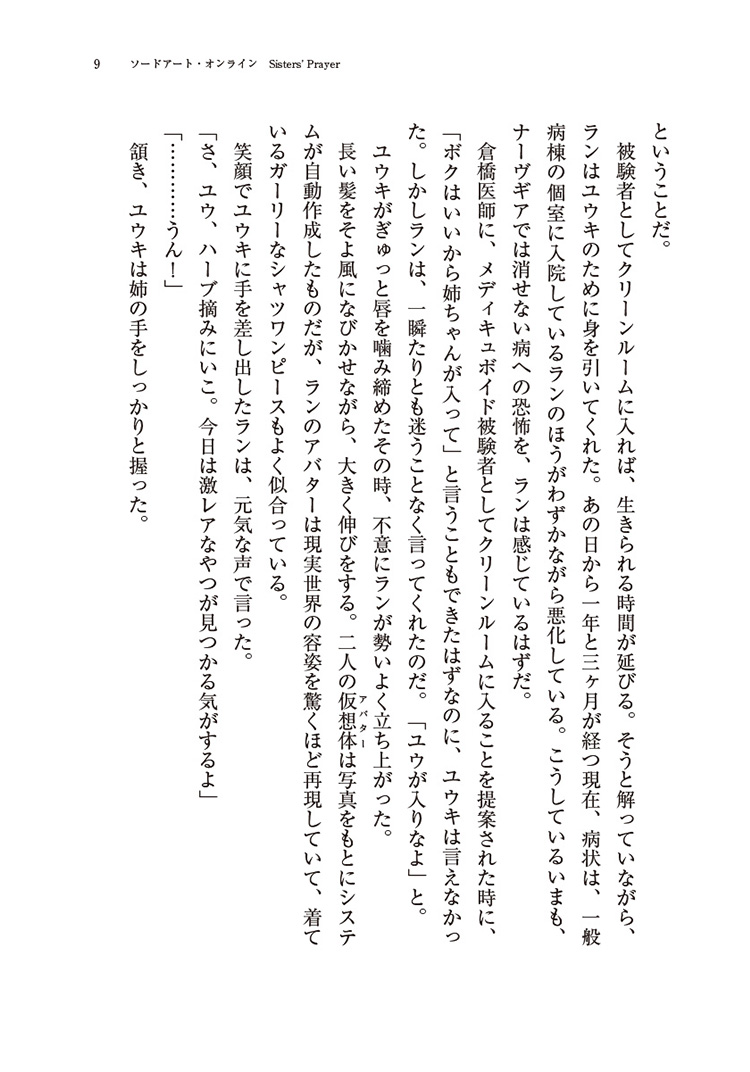 9 ソードアート・オンライン Sisters' Prayer
ということだ。
被験者としてクリーンルームに入れば、生きられる時間が延びる。そうと解っていながら、
ランはユウキのために身を引いてくれた。あの日から一年と三ヶ月が経つ現在、病状は、一般
病棟の個室に入院しているランのほうがわずかながら悪化している。こうしているいまも、
ナーヴギアでは消せない病への恐怖を、ランは感じているはずだ。
倉橋医師に、メディキュボイド被験者としてクリーンルームに入ることを提案された時に、
「ボクはいいから姉ちゃんが入って」と言うこともできたはずなのに、ユウキは言えなかっ
た。しかしランは、一瞬たりとも迷うことなく言ってくれたのだ。「ユウが入りなよ」と。
ユウキがぎゅっと唇を噛み締めたその時、不意にランが勢いよく立ち上がった。
長い髪をそよ風になびかせながら、大きく伸びをする。二人の仮想体アバターは写真をもとにシステ
ムが自動作成したものだが、ランのアバターは現実世界の容姿を驚くほど再現していて、着て
いるガーリーなシャツワンピースもよく似合っている。
笑顔でユウキに手を差し出したランは、元気な声で言った。
「さ、ユウ、ハーブ摘みにいこ。今日は激レアなやつが見つかる気がするよ」
「…………うん！」
頷き、ユウキは姉の手をしっかりと握った。